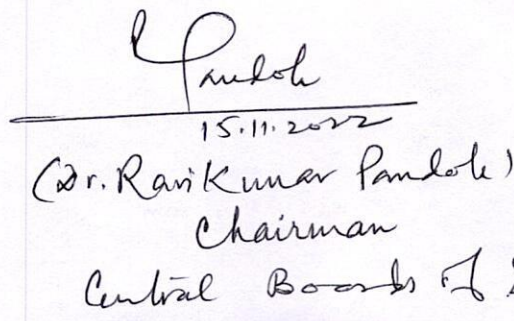 Pandoh
15.11.2022
(Dr. Ravi Kumar Pandoh)
Chairman
Central Boards of